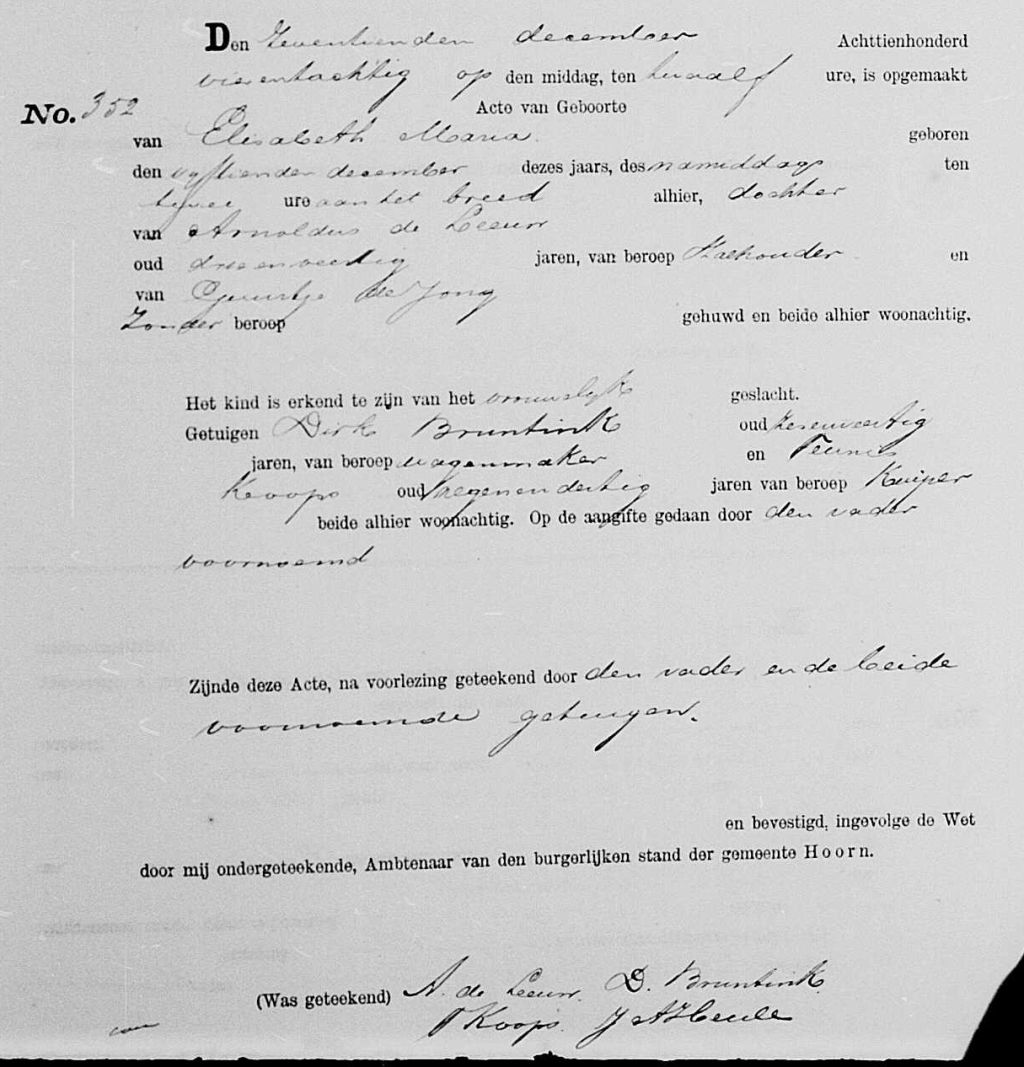 Den Zeventienden december Achttienhonderd
vierentachtig op den middag, ten twaalf ure, is opgemaakt
No. 352 Acte van Geboorte
van Elisabeth Maria geboren
den vyftienden december dezes jaars, des namiddags ten
twee ure aan het breed alhier, dochter
van Arnoldus de Leeuw
oud drieenveertig jaren, van beroep Koehouder en
van Geertje de Jong
Zonder beroep gehuwd en beide alhier woonachtig.
Het kind is erkend te zijn van het vrouwelyk geslacht.
Getuigen Dirk Bruntink oud zesenveertig
jaren, van beroep wagenmaker en Teunis
Koops oud negenendertig jaren van beroep Kuiper
beide alhier woonachtig. Op de aangifte gedaan door den vader
voornoemd
Zijnde deze Acte, na voorlezing geteekend door den vader en de beide
voornoemde getuigen.
en bevestigd, ingevolge de Wet
door mij ondergeteekende, Ambtenaar van den burgerlijken stand der gemeente Hoorn.
(Was geteekend) A. de Leeuw. D. Bruntink.
T Koops.